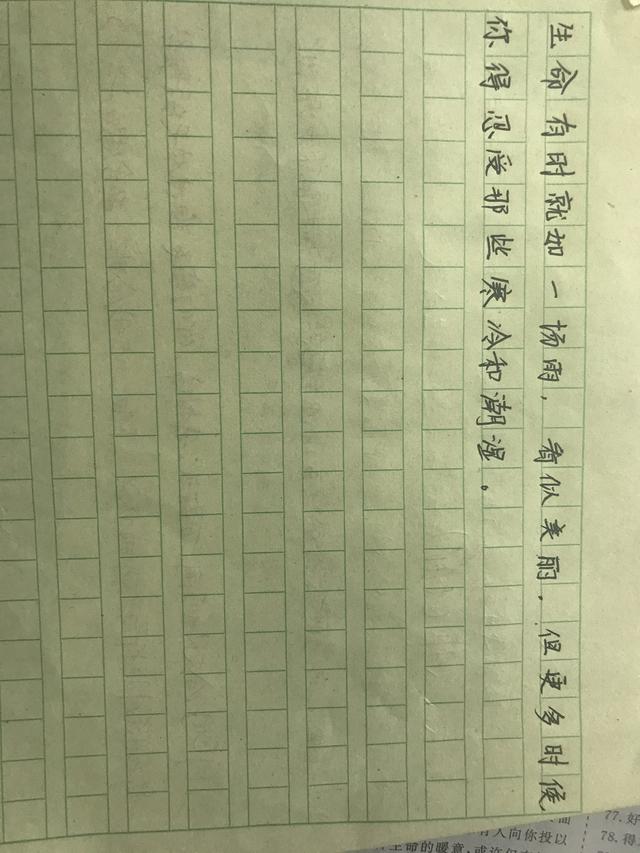 生命有时就如一场雨，看似美丽，但更多时候
你得忍受那些寒冷和潮湿。
77.好
78.得
有人向你投以
生命的暖意,或许